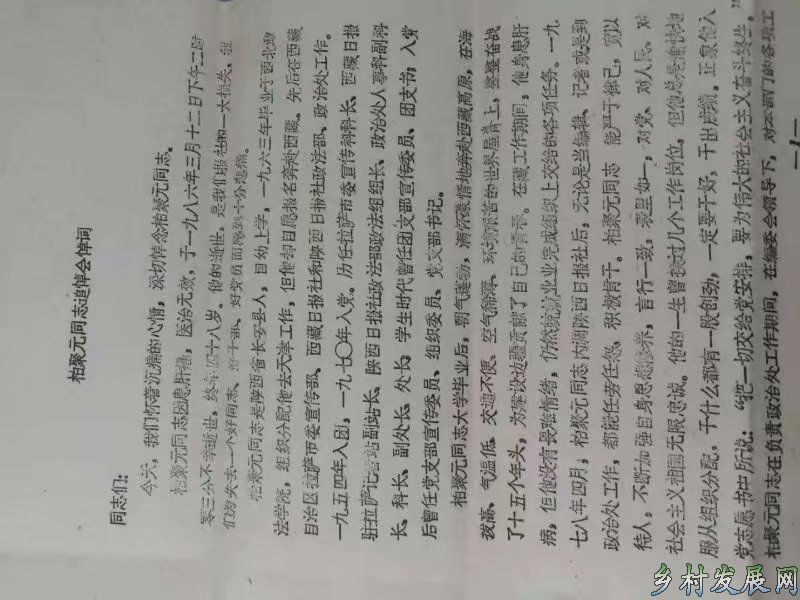 柏聚元同志追悼会悼词
同志们:
今天,我们怀着沉痛的心情,深切悼念柏聚元同志。
柏聚元同志因患肝癌,医治无效,于一九八六年三月十二日下午二时
零三分不幸逝世,终年四十八岁。他的逝世,是我们报社的一大损失,我
们为失去一个好同志、好干部、好党员而感到十分悲痛。
柏聚元同志是陕西省长安县人,自幼上学,一九六三年毕业于西北政
法学院,组织分配他去天津工作,但他却自愿报名奔赴西藏。先后在西藏
自治区拉萨市委宣传部、西藏日报社和陕西日报社政法部、政治处工作。
一九五四年入团,一九七〇年入党。历任拉萨市委宣传科科长、西藏日报
驻拉萨记者站副站长、陕西日报社政法部政法组组长、政治处人事科副科
长、科长、副处长、处长,学生时代曾任团支部宣传委员、团支书;入党
后曾任党支部宣传委员、组织委员、党支部书记。
柏聚元同志大学毕业后,朝气蓬勃,满怀豪情地奔赴西藏高原,在海
拔高、气温低、交通不便、空气稀薄、环境艰苦的世界屋脊上,整整奋战
了十五个年头,为建设边疆贡献了自己的青春。在藏工作期间,他身患肝
病,但他没有畏难情绪,仍然兢兢业业完成组织上交给的各项任务。一九
七八年四月,柏聚元同志内调陕西日报社后,无论是当编辑、记者或是到
政治处工作,都能任劳任怨,积极肯干。柏聚元同志 能严于律己,宽以
待人,不断加强自身思想修养,言行一致,表里如一,对党、对人民、对
社会主义祖国无限忠诚。他的一生曾换过几个工作岗位,但他总是愉快地
服从组织分配,干什么都有一股创劲,一定要干好,干出成绩。正象他入
党志愿书中所说:“把一切交给党安排,要为伟大的社会主义奋斗终生。”
柏聚元同志在负责政治处工作期间,在编委会领导下,对本部门的各项工
—1—
乡村发展网